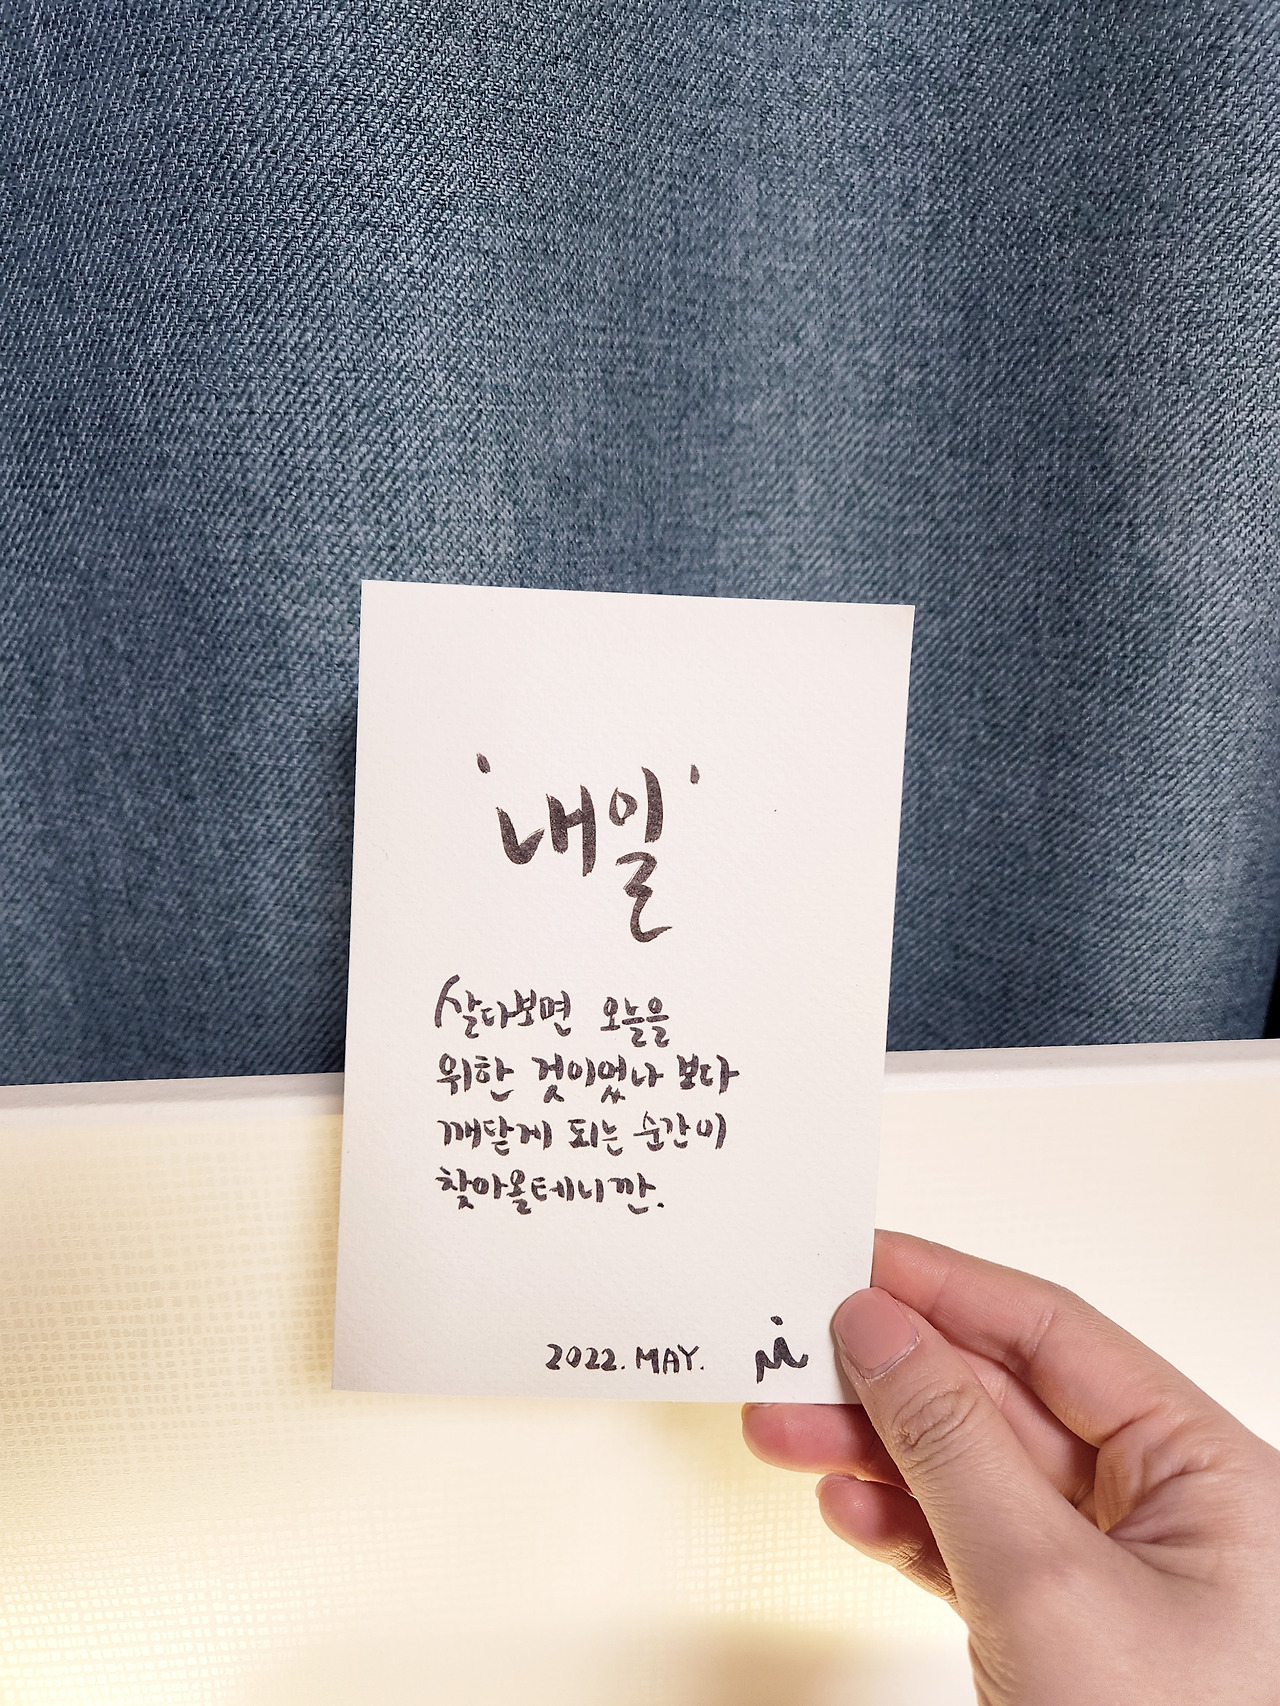 '내일'
살다보면 오늘을
위한 것이었나 보다
깨닫게 되는 순간이
찾아올테니깐.
2022. MAY.